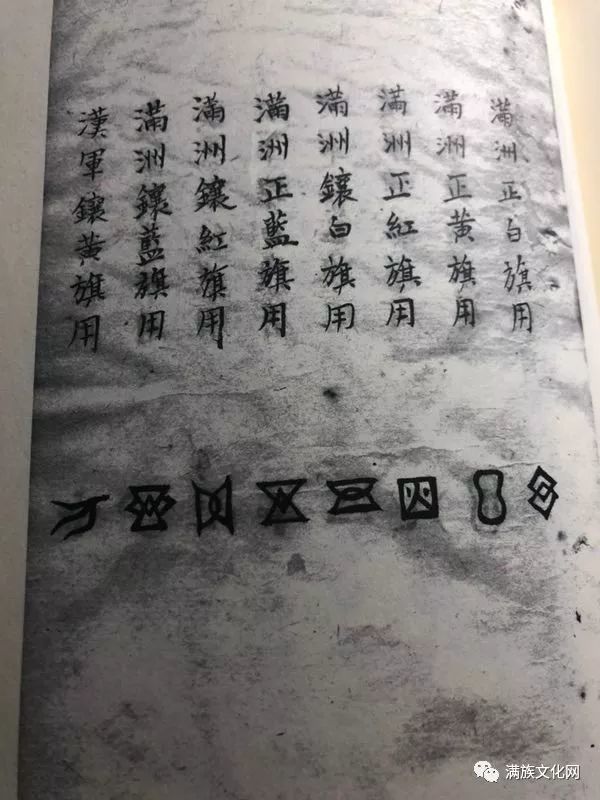 满洲正白旗用
满洲正黄旗用
滿洲正紅旗用
滿洲鑲白旗用
滿洲正藍旗用
滿洲鑲紅旗用
滿洲鑲藍旗用
漢軍鑲黃旗用
满族文化网